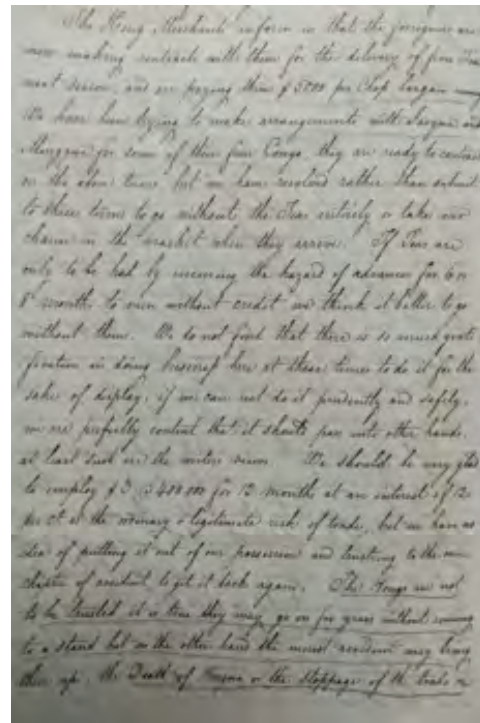 The Hong Merchants inform us that the foreigners are
now making contracts with them for the delivery of fine Teas
next season, and are paying them $5000 per Chop bargain money
We have been trying to make arrangements with and
for some of their fine Congo, they are ready to contract
on the above terms but we have resolved rather than submit
to these terms to go without the Teas entirely or take our
chance in the market when they arrive. If Teas are
only to be had by incurring the hazard of advances for 6 or
8 months to men without credit we think it better to go
without them. We do not find that there is so much grati
fication in doing business here at these times to do it for the
sake of display, if we can not do it prudently and safely,
we are perfectly content that it should pass into other hands,
at least such are the writers views. We should be very glad
to employ $3 @ 400 000 for 12 months at an interest of 12
per ct at the ordinary & legitimate risk of trade, but we have no
idea of putting it out of our possession and trusting to the
chapter of accident to get it back again. The Hongs are not
to be trusted it is true they may go on for years without coming
to a stand but on the other hand the merest accident may bring
them up, the Death of or the stoppage of the trade